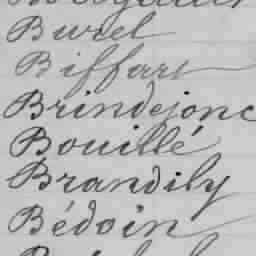 Burel
Biffart
Brindejonc
Bouillé
Brandily
Bédoin